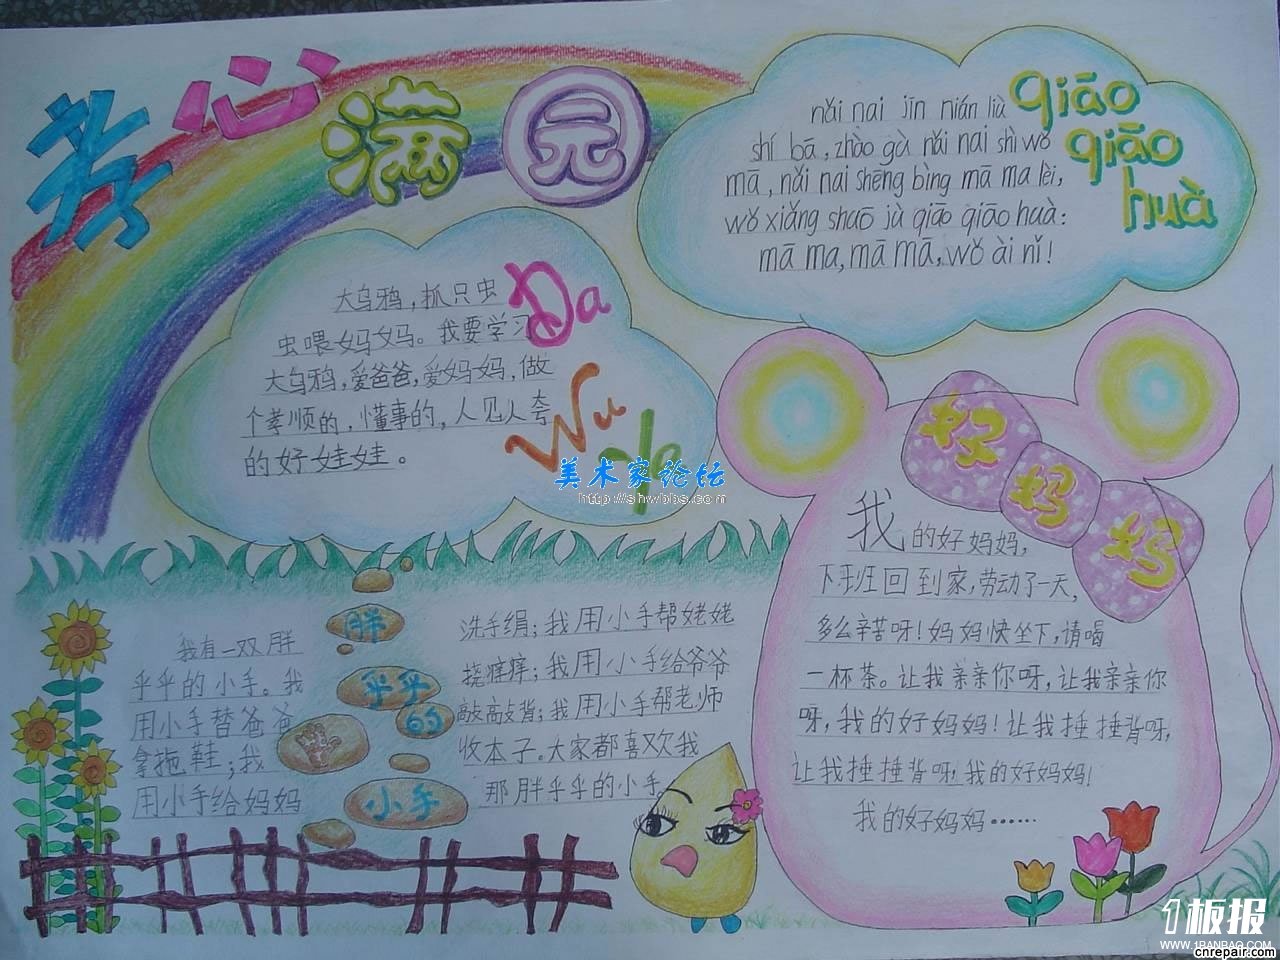 孝心满园
qiāo
qiāo
huà
nǎi nai jīn nián liù
shí bā, zhào gù nǎi nai shì wǒ
mā, nǎi nai shēng bìng mā ma lèi,
wǒ xiǎng shuō jù qiāo qiāo huà:
mā ma, mā mā, wǒ ài nǐ!
Da
Wu
Ya
大乌鸦，抓只虫
虫喂妈妈。我要学习
大乌鸦，爱爸爸，爱妈妈，做
个孝顺的，懂事的，人见人夸
的好娃娃。
美术家论坛
http://shwbbs.com
好妈妈
我的好妈妈，
下班回到家，劳动了一天，
多么辛苦呀！妈妈快坐下，请喝
一杯茶。让我亲亲你呀，让我亲亲你
呀，我的好妈妈！让我捶捶背呀，
让我捶捶背呀，我的好妈妈！
我的好妈妈……
胖
乎乎
的
小手
我有一双胖
乎乎的小手。我
用小手替爸爸
拿拖鞋；我
用小手给妈妈
洗手绢；我用小手帮姥姥
挠痒痒；我用小手给爷爷
敲敲背；我用小手帮老师
收本子。大家都喜欢我
那胖乎乎的小手。
1板报
WWW.1BANBAO.COM
cnrepair.com